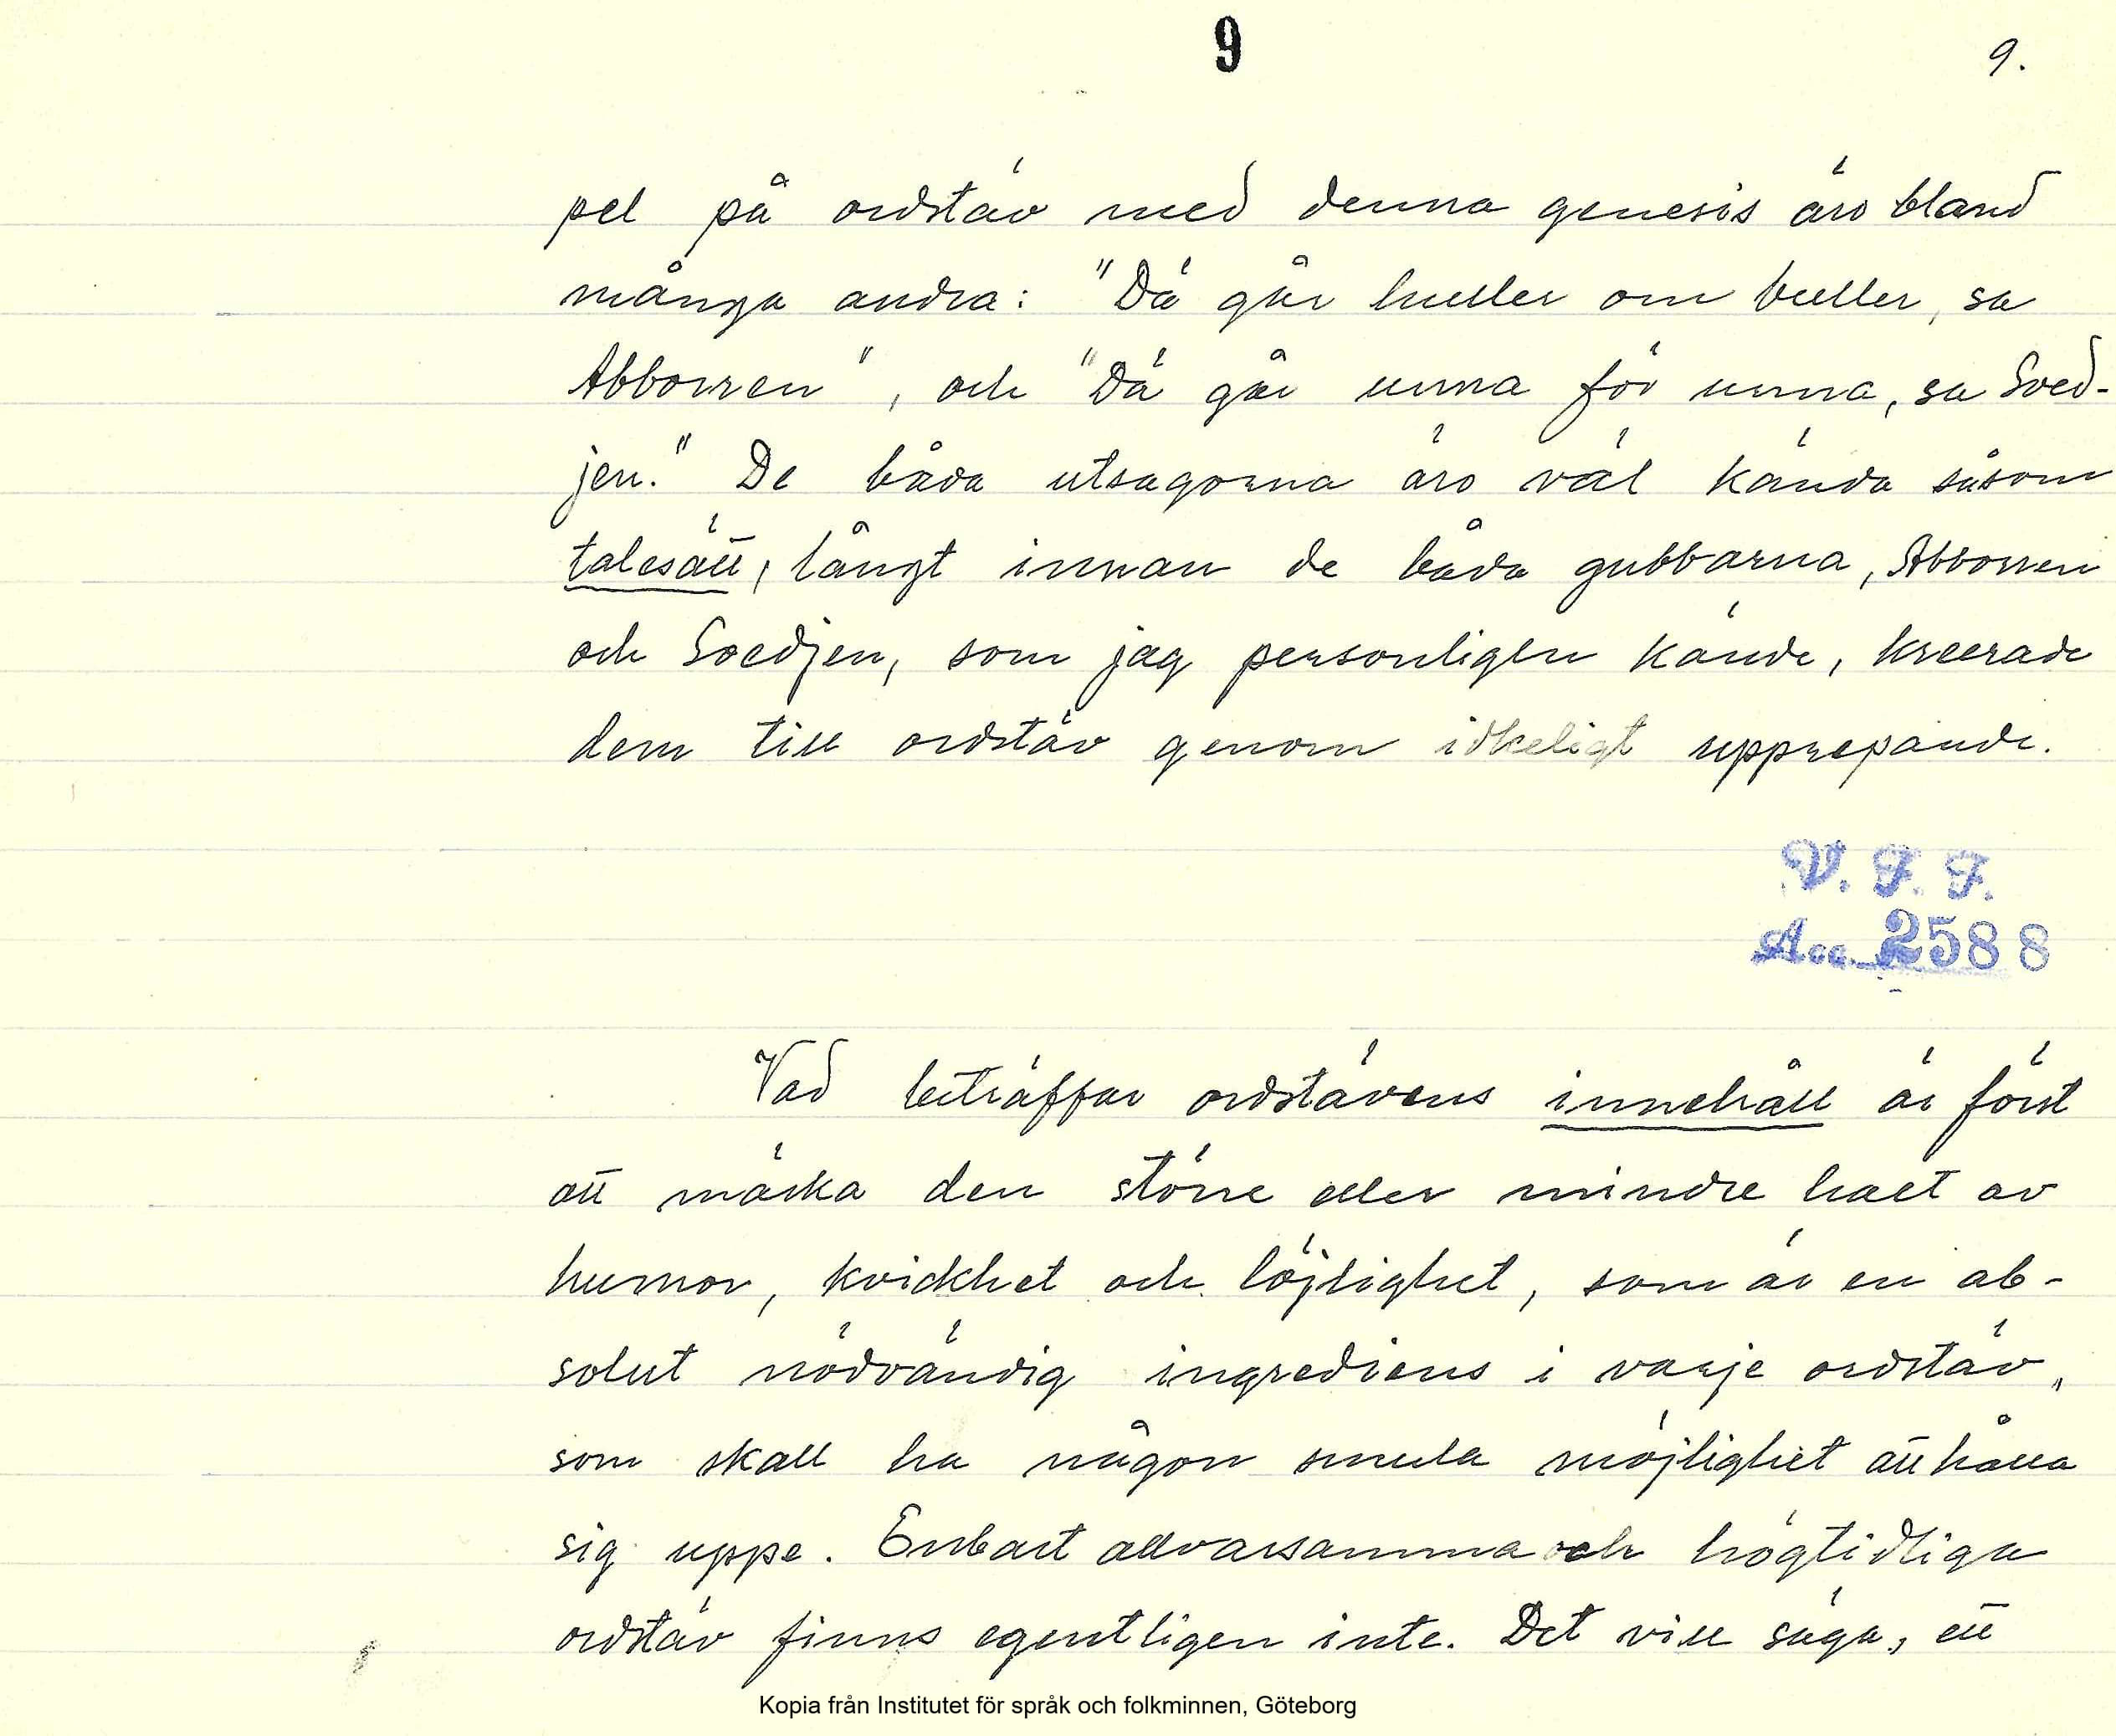 9
9.
pel på ordstäv med denna genesis äro bland
många andra: "Dä går huller om buller, sa
Abborren", och "Dä går unna för unna, sa Sved-
jen." De båda utsagorna äro väl kända såsom
talesätt, långt innan de båda gubbarna, Abborren
och Svedjen, som jag personligen kände, kreerade
dem till ordstäv genom idkeligt upprepande.
V. F. F.
Acc. 2588
Vad beträffar ordstävens innehåll är först
att märka den större eller mindre halt av
humor, kvickhet och löjlighet, som är en ab-
solut nödvändig ingrediens i varje ordstäv,
som skall ha någon smula möjlighet att hålla
sig uppe. Enbart allvarsamma och högtidliga
ordstäv finns egentligen inte. Det vill säga, ett
Kopia från Institutet för språk och folkminnen, Göteborg